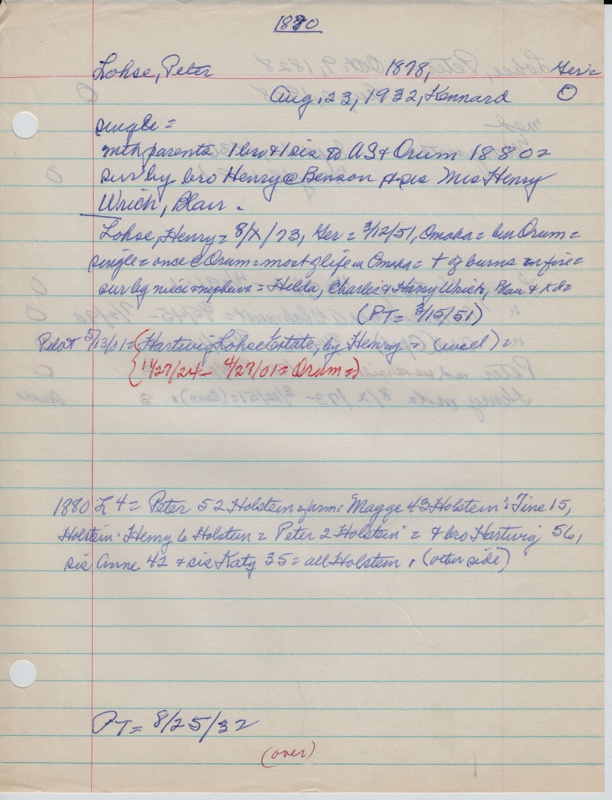 1880
Lohse, Peter 1878, Ger =
Aug. 23, 1932, Kennard O
single =
with parents 1 bro & 1 sis to US & Orum 1880 =
sur by bro Henry @ Benson & sis Mrs Henry
Wrich, Blair.
Lohse, Henry = 8/X/73, Ger = 3/12/51, Omaha = bur Orum =
single = once @ Orum = most of life in Omaha = + of burns in fire =
sur by niece & nephews = Hilda, Charlie & Harry Wrich, Blair &
(PT = 3/15/51)
Pilot 5/13/11 = (Hartwig Lohse Estate, by Henry =) (excel) =
{ 11/27/24 - 4/27/01 = Orum = )
1880 L 4 = Peter 52 Holstein farm: Magge 43 Holstein: Tine 15,
Holstein: Henry 6 Holstein = Peter 2 Holstein = & bro Hartwig 56,
sis Anne 42 & sis Katy 35 = all Holstein. (other side)
PT = 8/25/32
(over)